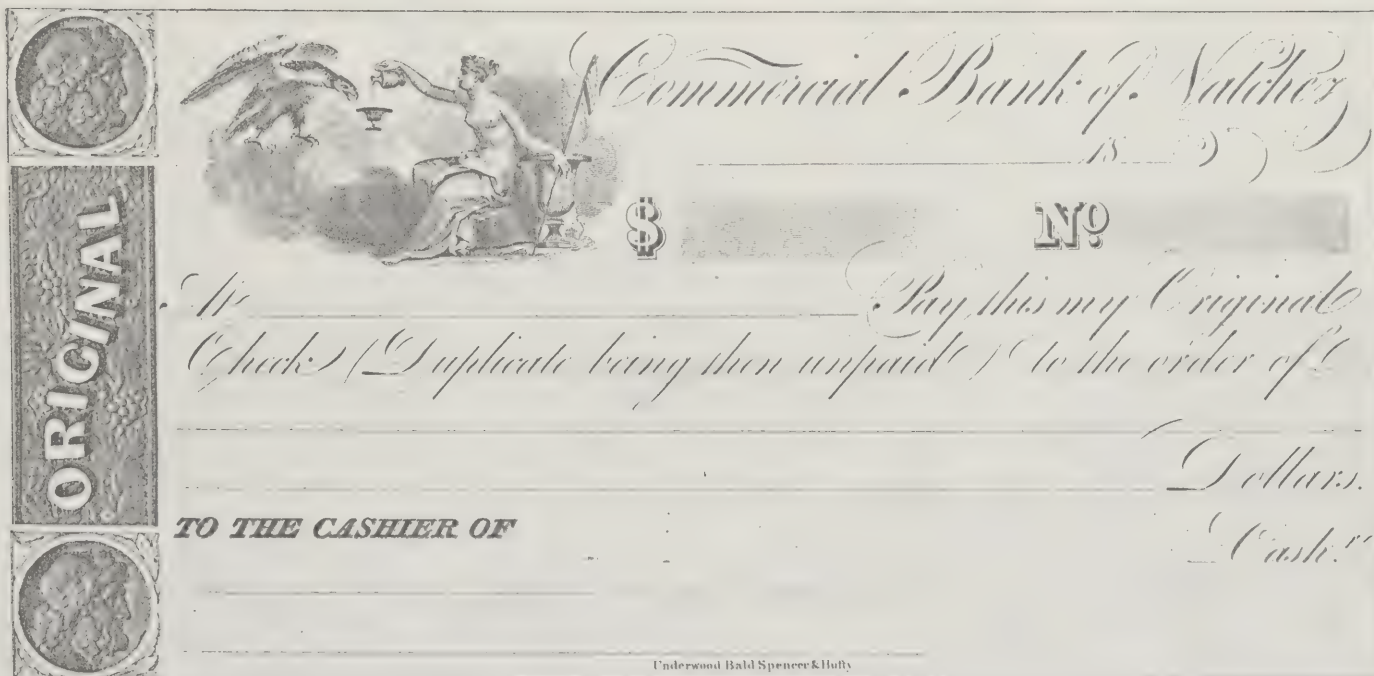 ORIGINAL
Commercial Bank of Natchez
18
$ No
At Pay this my Original
Check (Duplicate being then unpaid) to the order of
Dollars.
TO THE CASHIER OF
Cashr
Underwood Bald Spencer & Hufty